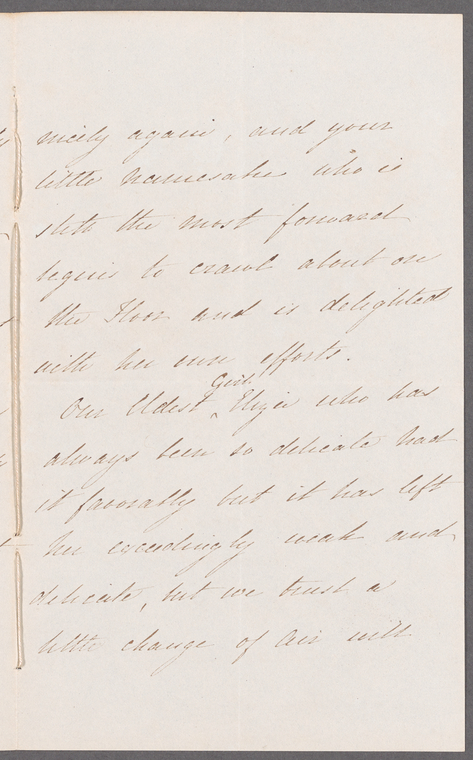 nicely again, and your
little namesake who is
still the most forward
begins to crawl about on
the Floor and is delighted
with her own efforts.
Our Oldest Girl Eliza who has
always been so delicate had
it favorably but it has left
her exceedingly weak and
delicate, but we trust a
little change of Air will